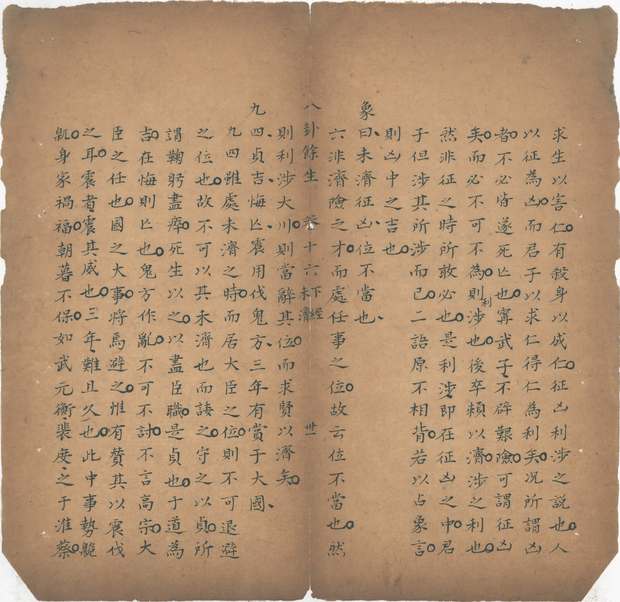 求生以害仁有殺身以成仁征凶利涉之說也人
以征為凶而君子以求仁得仁為利矣况所謂凶
者不必皆遂死亾也甯武子不辟艱險可謂征凶
矣而必不可不為則利涉也後卒頼以濟涉之利也
然非征之時所敢必也是利涉即在征凶之中君
子但涉其所涉而已二語原不相背若以占象言
則凶中之吉也
象曰未濟征凶位不當也
六非濟險之才而處任事之位故云位不當也然
八卦餘生 卷十六 下經 未濟 卅一
則利涉大川則當辭其位而求賢以濟矣
九四貞吉悔亾震用伐鬼方三年有賞于大國
九四雖處未濟之時而居大臣之位則不可退避
之位也故不可以其未濟也而諉之守之以貞所
謂鞠躬盡瘁死生以之以盡臣職是貞也于道為
吉在悔則亾也鬼方作亂不可不討不言高宗大
臣之任也國之大事將焉避之惟有賛其以震伐
之耳震者震其威也三年難且久也此中事勢臲
卼身家禍福朝暮不保如武元衡裴度之于淮蔡